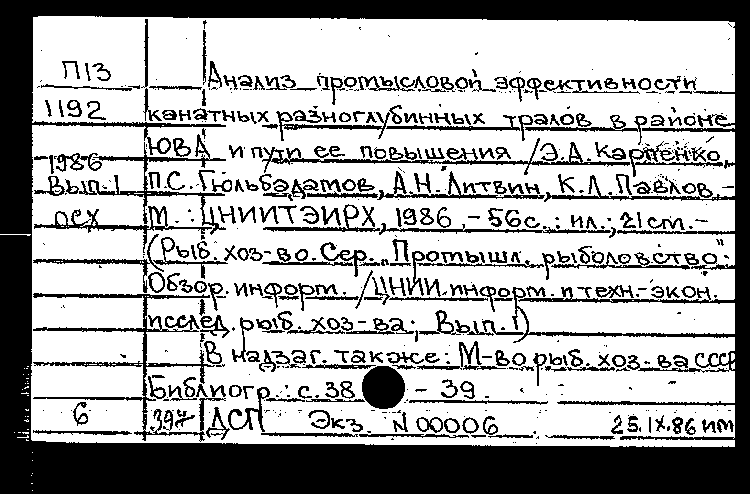 П13 Анализ промысловой эффективности
1192 канатных разноглубинных тралов в районе
ЮВА и пути ее повышения /Э.А. Карпенко,
1986
Вып. 1 П.С. Гюльбадамов, А.Н. Литвин, К.Л. Павлов.-
осх М.: ЦНИИТЭИРХ, 1986.-56с.: ил.; 21см.-
(Рыб. хоз-во. Сер. "Промышл. рыболовство":
Обзор. информ. /ЦНИИ информ. и техн.-экон.
исслед. рыб. хоз-ва; Вып. 1)
В надзаг. также: М-во рыб. хоз-ва СССР
Библиогр.: с. 38 - 39.
6 397 ДСП Экз. N 00006 25.IX.86 им